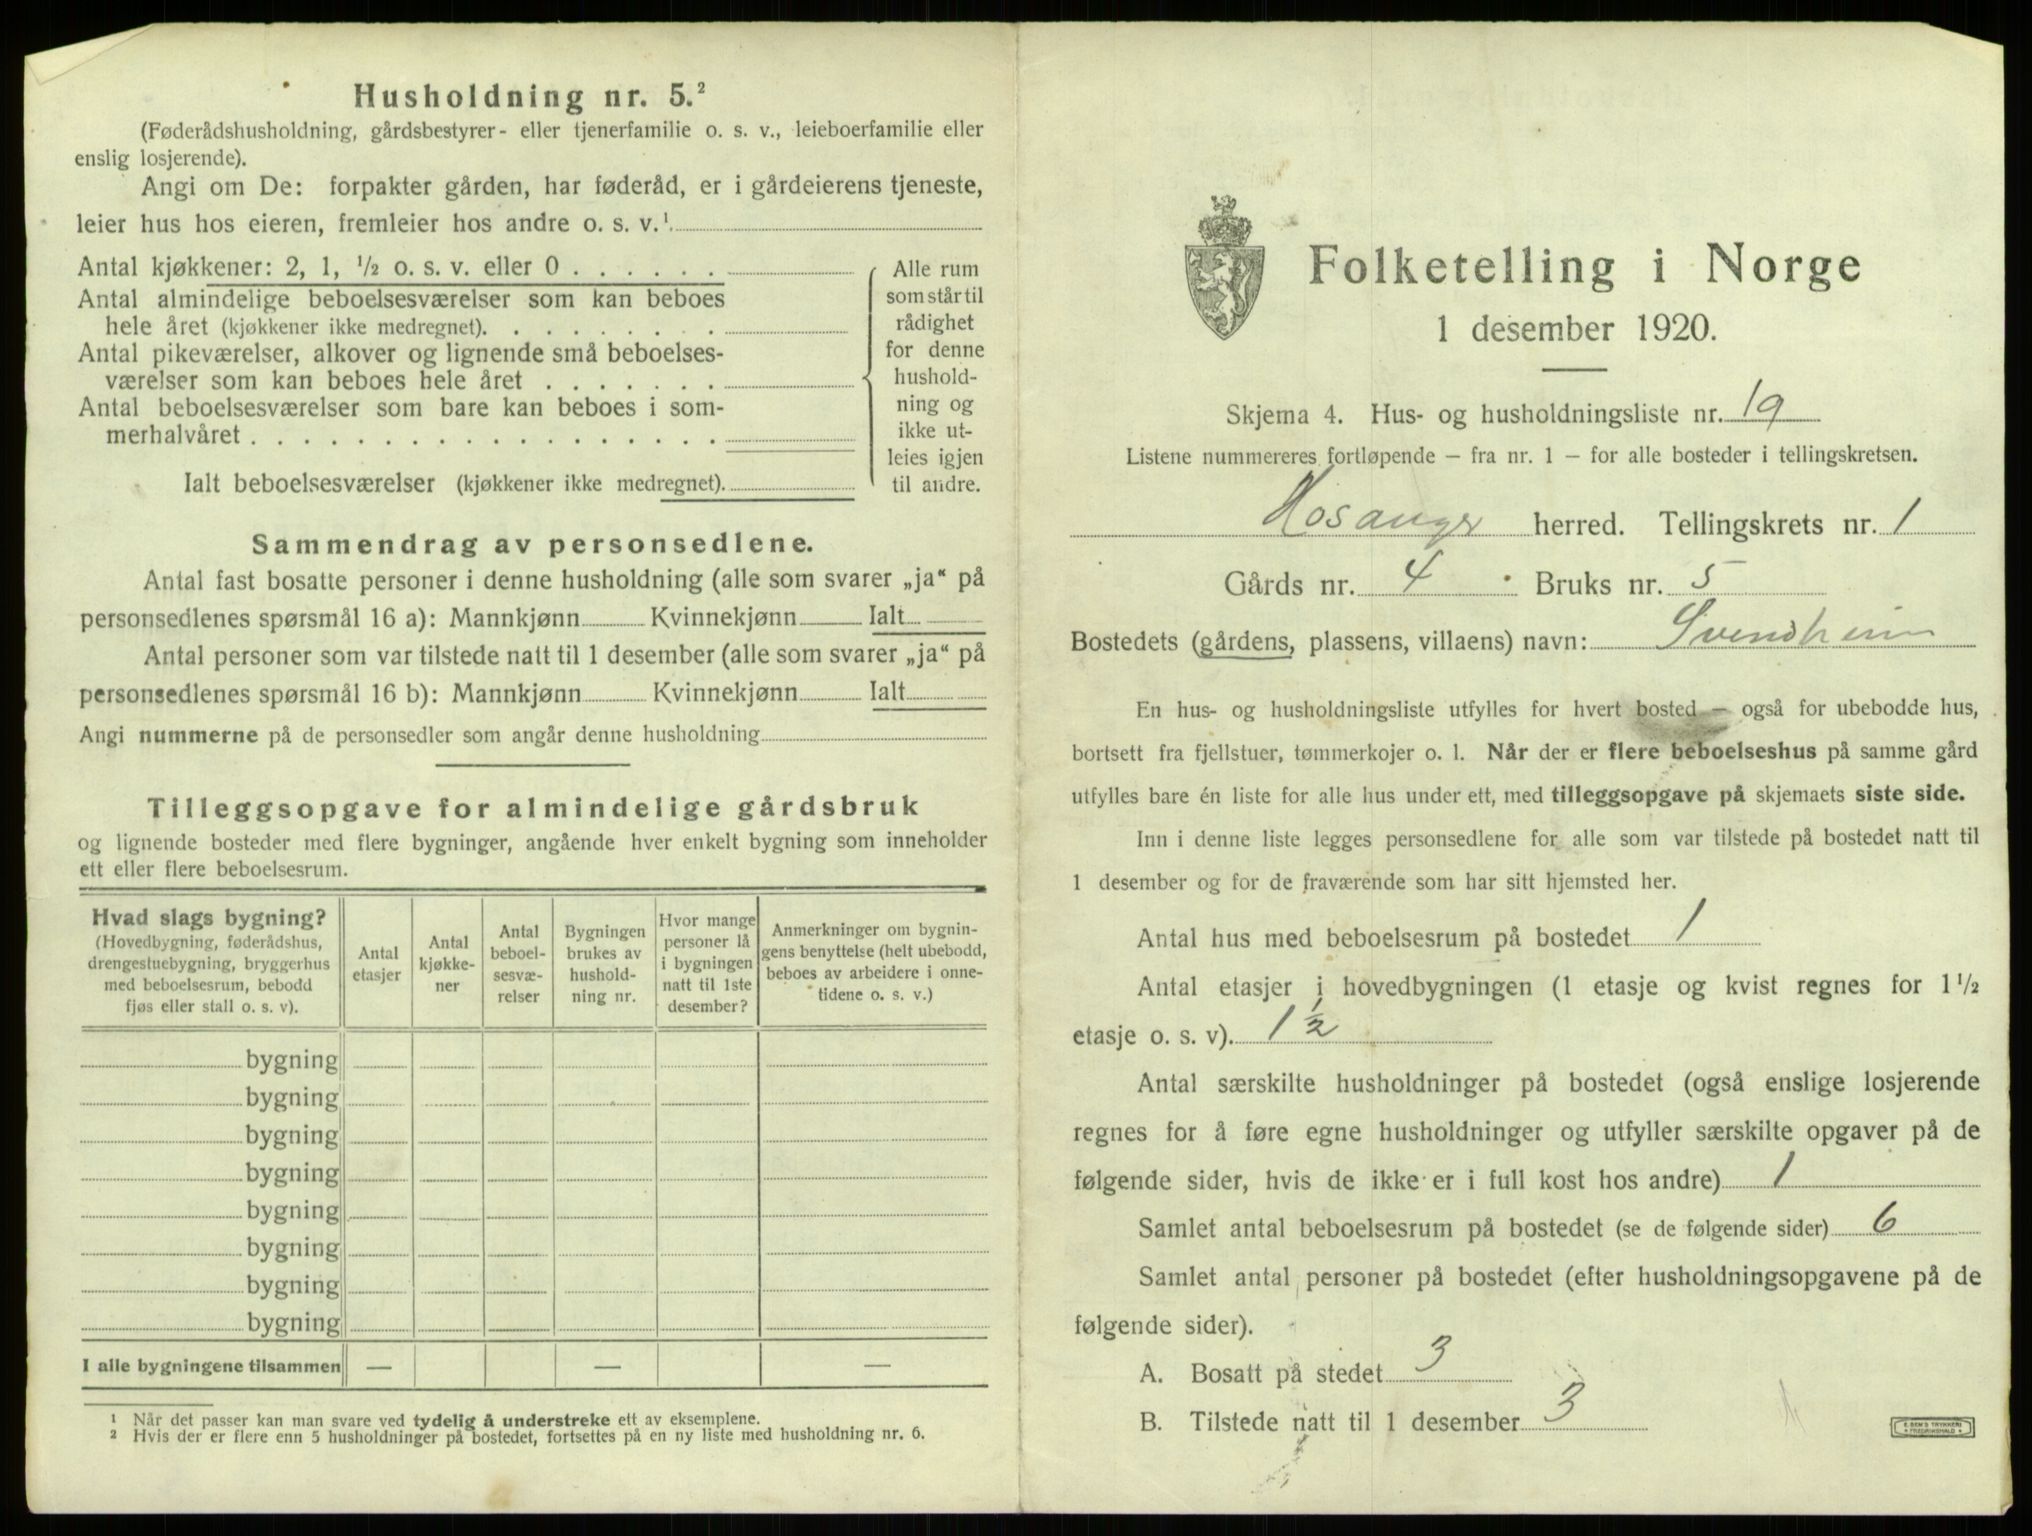 Husholdning nr. 5.²
(Føderådshusholdning, gårdsbestyrer- eller tjenerfamilie o. s. v., leieboerfamilie eller
enslig losjerende).
Angi om De: forpakter gården, har føderåd, er i gårdeierens tjeneste,
leier hus hos eieren, fremleier hos andre o. s. v.¹
Antal kjøkkener: 2, 1, ½ o. s. v. eller 0 . . . . . .
Antal almindelige beboelsesværelser som kan beboes
hele året (kjøkkener ikke medregnet). . . . . . . . .
Antal pikeværelser, alkover og lignende små beboelses-
værelser som kan beboes hele året . . . . . . .
Antal beboelsesværelser som bare kan beboes i som-
merhalvåret . . . . . . . . . . . . . . . . . .
Ialt beboelsesværelser (kjøkkener ikke medregnet).
Alle rum
som står til
rådighet
for denne
hushold-
ning og
ikke ut-
leies igjen
til andre.
Sammendrag av personsedlene.
Antal fast bosatte personer i denne husholdning (alle som svarer „ja“ på
personsedlenes spørsmål 16 a): Mannkjønn Kvinnekjønn Ialt
Antal personer som var tilstede natt til 1 desember (alle som svarer „ja“ på
personsedlenes spørsmål 16 b): Mannkjønn Kvinnekjønn Ialt
Angi nummerne på de personsedler som angår denne husholdning
Tilleggsopgave for almindelige gårdsbruk
og lignende bosteder med flere bygninger, angående hver enkelt bygning som inneholder
ett eller flere beboelsesrum.
Hvad slags bygning?
(Hovedbygning, føderådshus,
drengestuebygning, bryggerhus
med beboelsesrum, bebodd
fjøs eller stall o. s. v).
Antal
etasjer
Antal
kjøkke-
ner
Antal
beboel-
sesvæ-
relser
Bygningen
brukes av
hushold-
ning nr.
Hvor mange
personer lå
i bygningen
natt til 1ste
desember?
Anmerkninger om bygnin-
gens benyttelse (helt ubebodd,
beboes av arbeidere i onne-
tidene o. s. v.)
bygning
bygning
bygning
bygning
bygning
bygning
bygning
bygning
I alle bygningene tilsammen — — —
¹ Når det passer kan man svare ved tydelig å understreke ett av eksemplene.
² Hvis der er flere enn 5 husholdninger på bostedet, fortsettes på en ny liste med husholdning nr. 6.
Folketelling i Norge
1 desember 1920.
Skjema 4. Hus- og husholdningsliste nr. 19
Listene nummereres fortløpende — fra nr. 1 — for alle bosteder i tellingskretsen.
Hosanger herred. Tellingskrets nr. 1
Gårds nr. 4 Bruks nr. 5
Bostedets (gårdens, plassens, villaens) navn: Svendheim
En hus- og husholdningsliste utfylles for hvert bosted — også for ubebodde hus,
bortsett fra fjellstuer, tømmerkojer o. l. Når der er flere beboelseshus på samme gård
utfylles bare én liste for alle hus under ett, med tilleggsopgave på skjemaets siste side.
Inn i denne liste legges personsedlene for alle som var tilstede på bostedet natt til
1 desember og for de fraværende som har sitt hjemsted her.
Antal hus med beboelsesrum på bostedet 1
Antal etasjer i hovedbygningen (1 etasje og kvist regnes for 1½
etasje o. s. v). 1½
Antal særskilte husholdninger på bostedet (også enslige losjerende
regnes for å føre egne husholdninger og utfyller særskilte opgaver på de
følgende sider, hvis de ikke er i full kost hos andre) 1
Samlet antal beboelsesrum på bostedet (se de følgende sider) 6
Samlet antal personer på bostedet (efter husholdningsopgavene på de
følgende sider).
A. Bosatt på stedet 3
B. Tilstede natt til 1 desember 3
E. SEM'S TRYKKERI
FREDRIKSHALD